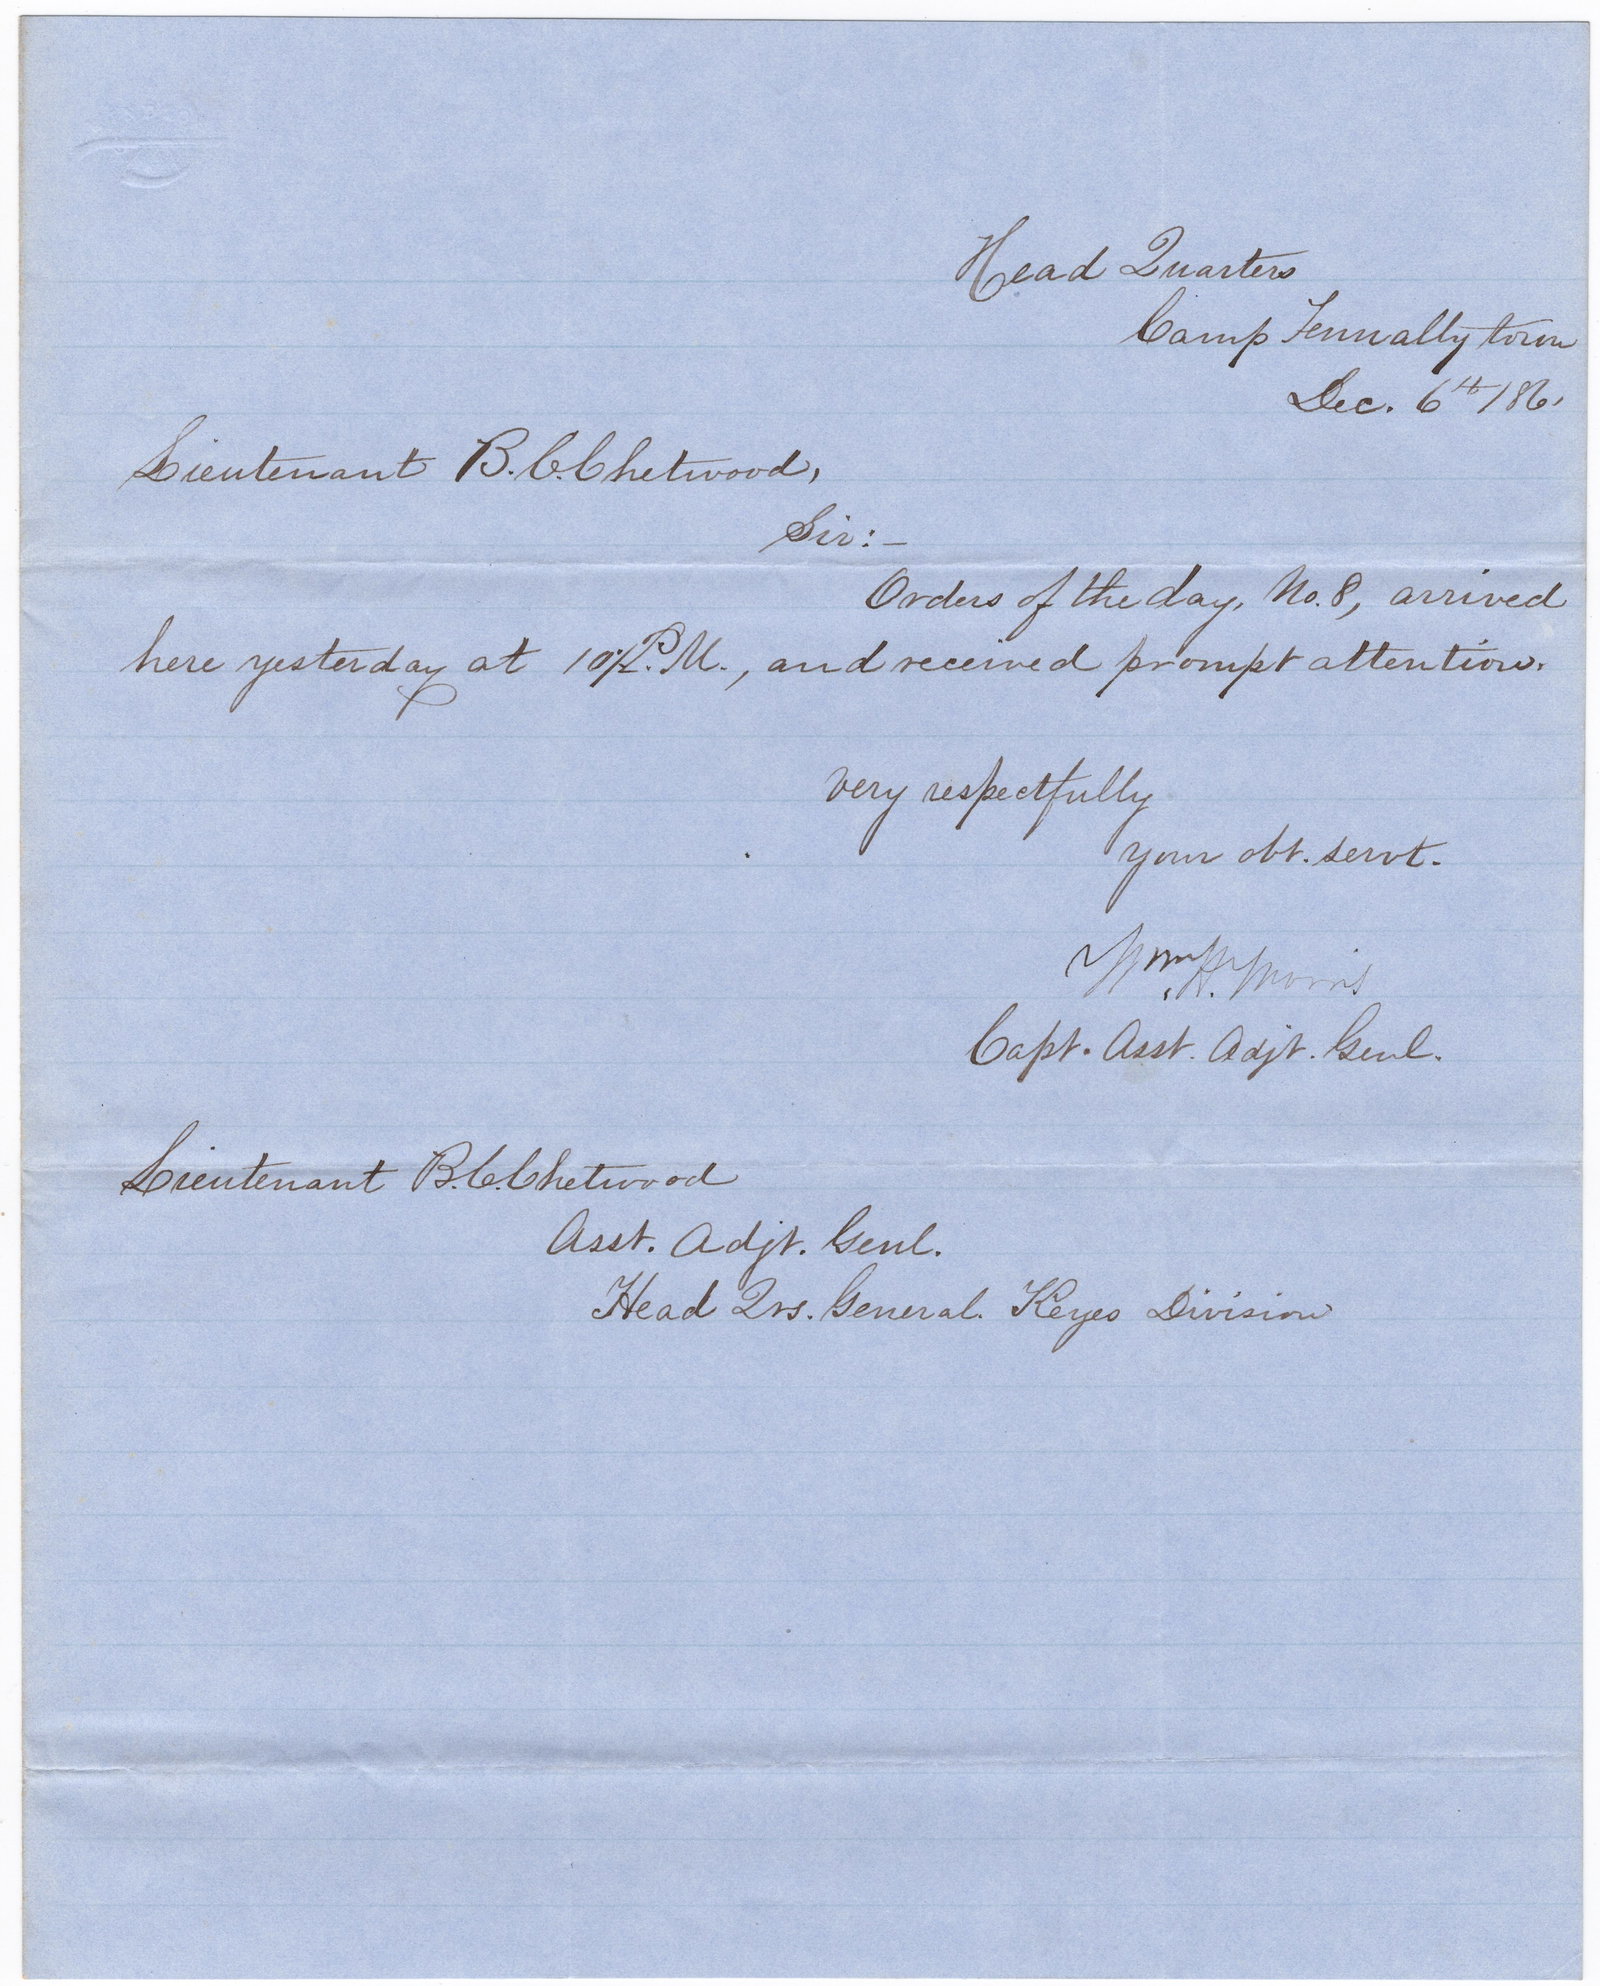 Head Quarters
Camp Tennallytown
Dec. 6th 186
Lieutenant B. C. Chetwood,
Sir:—
Orders of the day, No. 8, arrived
here yesterday at 10½ P. M., and received prompt attention.
Very respectfully
your obt. servt.
Wm. H. Morris
Capt. Asst. Adjt. Genl.
Lieutenant B. C. Chetwood
Asst. Adjt. Genl.
Head Qrs. General. Keyes Division